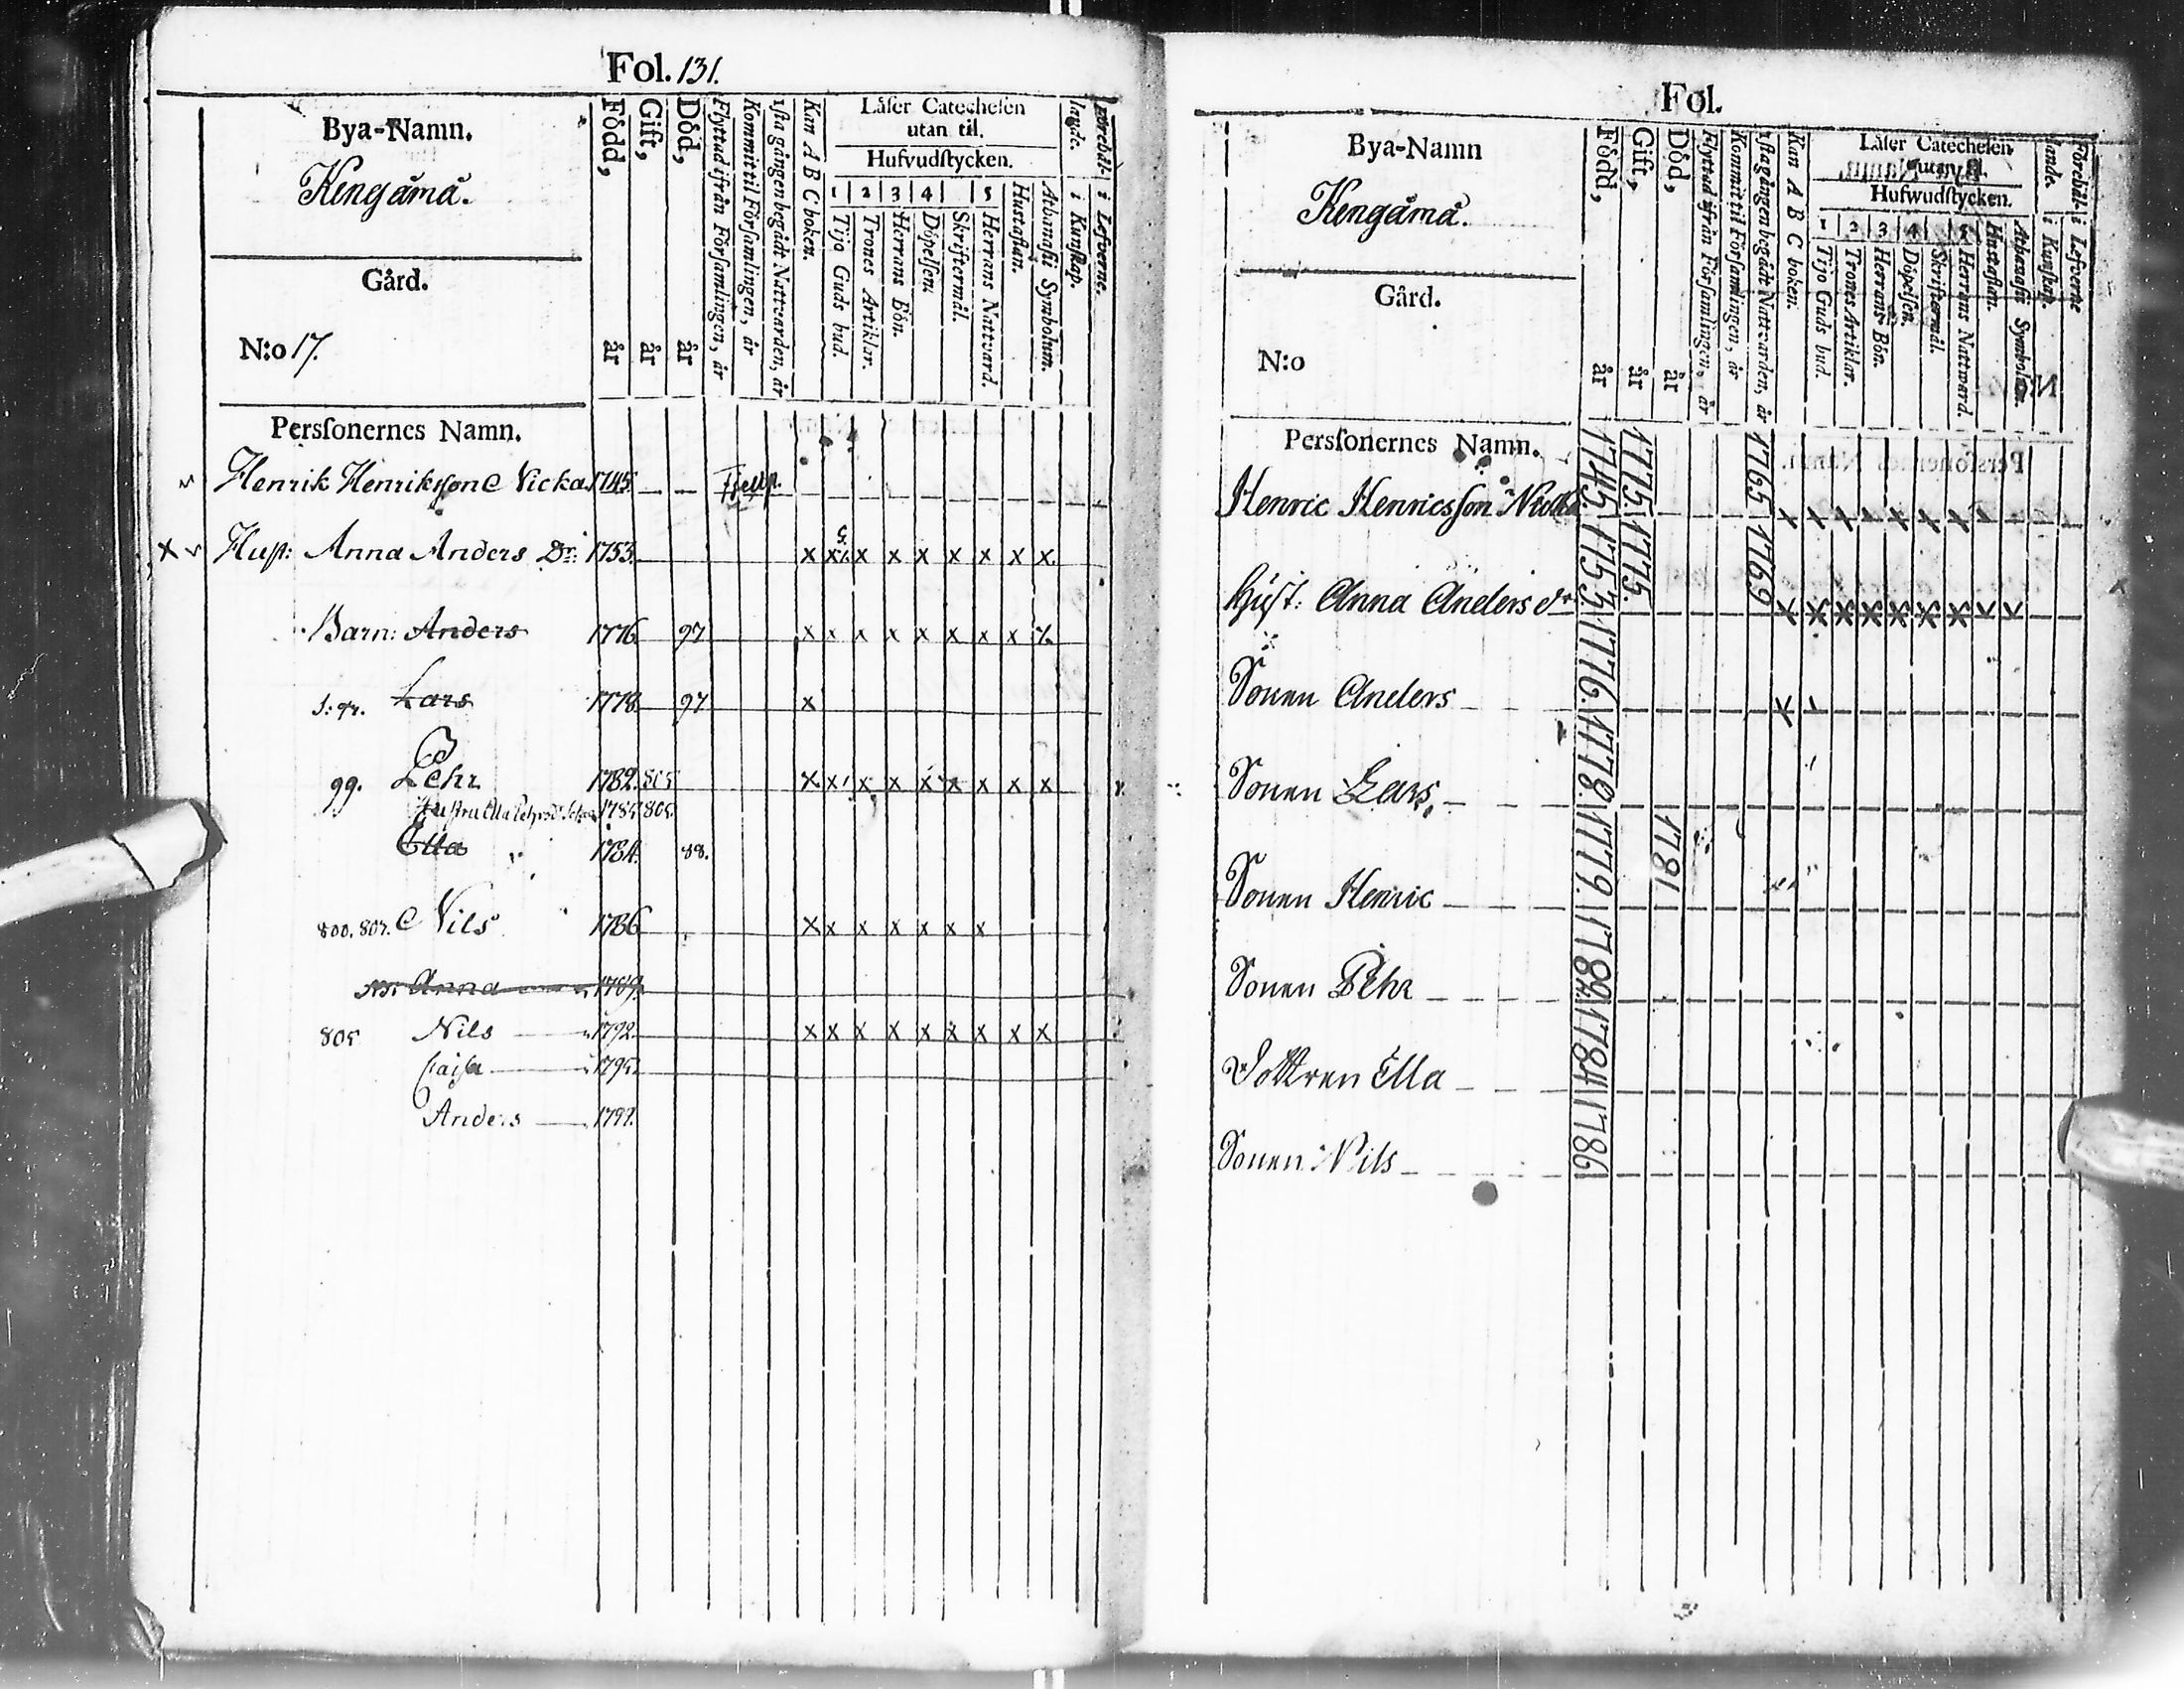 Fol. 131.
Bya-Namn.
Kengämä.
Gård.
N:o 17.
Persſonernes Namn.
Född, år
Gift, år
Död, år
Flyttad ifrån Förſamlingen, år
Kommit til Förſamlingen, år
1ſta gången begådt Nattvarden, år
Kan A B C boken.
Låſer Catecheſen
utan til.
Hufvudſtycken.
1 2 3 4 5
Tijo Guds bud.
Trones Artiklar.
Herrans Bön.
Döpelſen.
Skriftermål.
Herrans Nattvard.
Huſtaflan.
Athanaſii Symbolum.
i Kunſkap.
i Lefverne.
Henrik Henriksſon Nicka 1745. — —
Huſt: Anna Anders Dr. 1753. x x x x x x x x x
Barn: Anders 1776. 97 x x x x x x x x x
Lars 1778. 97 x
99. Pehr 1782. 805 x x x x x x x x x
1785. 805.
Ella 1784. 88.
800. 807. Nils 1786 x x x x x x x
Anna 1789.
805 Nils 1792. x x x x x x x x x
Caiſa 1795.
Anders 1797.
Fol.
Bya-Namn
Kengämä.
Gård.
N:o
Persſonernes Namn.
Född, år
Gift, år
Död, år
Flyttad ifrån Förſamlingen, år
Kommit til Förſamlingen, år
1ſta gången begådt Nattvarden, år
Kan A B C boken.
Låſer Catecheſen
Hufwudſtycken.
1 2 3 4 5
Tijo Guds bud.
Trones Artiklar.
Herrans Bön.
Döpelſen.
Skriftermål.
Herrans Nattward.
Huſtaflan.
Athanaſii Symbolum.
Förebål-
lande.
i Kunſkap.
i Lefverne
Henric Henricsſon Nicka 1745. 1775. 1765 x x x x x x x
Huſt: Anna Anders dr 1753. 1775. 1769 x x x x x x x x x
Sonen Anders 1776. x
Sonen Lars 1778.
Sonen Henric 1779. 1781
Sonen Pehr 1782.
Dottren Ella 1784
Sonen Nils 1786